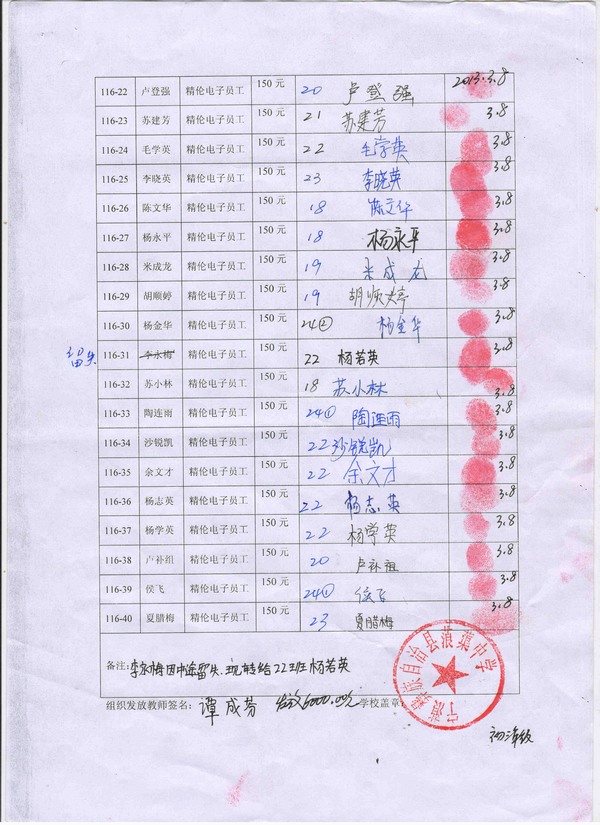 116-22 卢登强 精伦电子员工 150 元 20 卢登强 2013.3.8
116-23 苏建芳 精伦电子员工 150 元 21 苏建芳 3.8
116-24 毛学英 精伦电子员工 150 元 22 毛学英 3.8
116-25 李晓英 精伦电子员工 150 元 23 李晓英 3.8
116-26 陈文华 精伦电子员工 150 元 18 陈文华 3.8
116-27 杨永平 精伦电子员工 150 元 18 杨永平 3.8
116-28 米成龙 精伦电子员工 150 元 19 米成龙 3.8
116-29 胡顺婷 精伦电子员工 150 元 19 胡顺婷 3.8
116-30 杨金华 精伦电子员工 150 元 24② 杨金华 3.8
留失 116-31 李永梅 精伦电子员工 150 元 22 杨若英 3.8
116-32 苏小林 精伦电子员工 150 元 18 苏小林 3.8
116-33 陶连雨 精伦电子员工 150 元 24① 陶连雨 3.8
116-34 沙锐凯 精伦电子员工 150 元 22 沙锐凯 3.8
116-35 余文才 精伦电子员工 150 元 22 余文才 3.8
116-36 杨志英 精伦电子员工 150 元 22 杨志英 3.8
116-37 杨学英 精伦电子员工 150 元 22 杨学英 3.8
116-38 卢补组 精伦电子员工 150 元 20 卢补祖 3.8
116-39 侯飞 精伦电子员工 150 元 24① 侯飞 3.8
116-40 夏腊梅 精伦电子员工 150 元 23 夏腊梅 3.8
备注: 李永梅因中途留失.现转给22班杨若英
组织发放教师签名: 谭成芬 发放6000.00元 学校盖章:
宁蒗彝族自治县蒗蕖中学